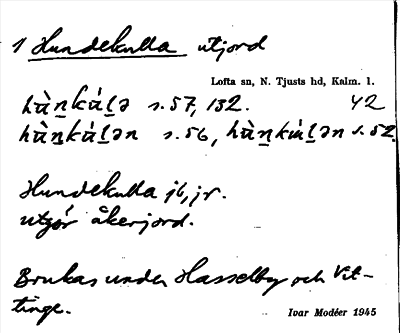 1 Hundekulla utjord
Lofta sn, N. Tjusts hd, Kalm. l.
hùn̲kúl̲ə s. 57, 132. 42
hùn̲kúl̲ən s. 56, hùn̲kúl̲ən s. 52.
Hundekulla jb, jr.
utgör åkerjord.
Brukas under Hasselby och Vit-
tinge.
Ivar Modéer 1945